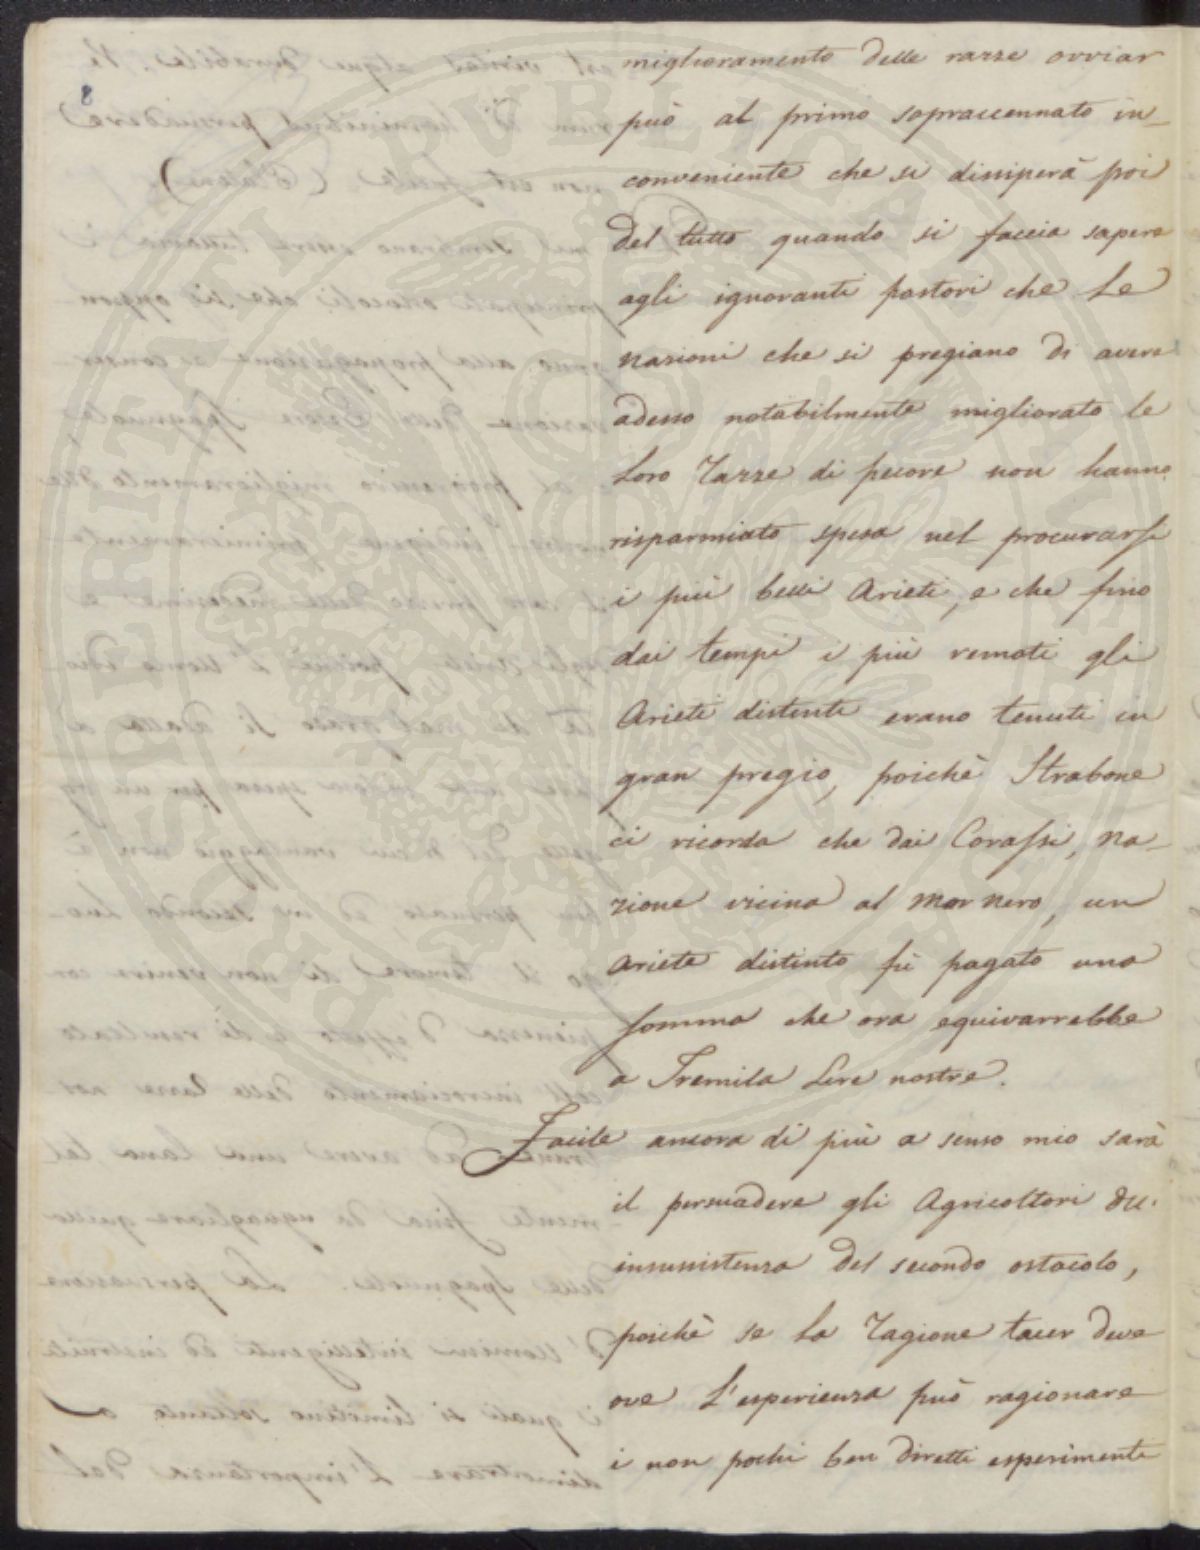 8
miglioramento delle razze ovviar
può al primo sopraccennato in-
conveniente che si dissiperà poi
del tutto quando si faccia sapere
agli ignoranti pastori che Le
nazioni che si pregiano di avere
adesso notabilmente migliorato le
Loro razze di pecore non hanno
risparmiato spesa nel procurarsi
i più belli Arieti, e che fino
dai tempi i più remoti gli
Arieti distinti erano tenuti in
gran pregio, poichè Strabone
ci ricorda che dai Corassi, na-
zione vicina al mar nero, un
ariete distinto fù pagato una
somma che ora equivarrebbe
a Tremila Lire nostre.
Facile ancora di più a senso mio sarà
il persuadere gli Agricoltori
insussistenza del secondo ostacolo,
poichè se La ragione tacer deve
ove L'esperienza può ragionare
i non pochi ben diretti esperimenti